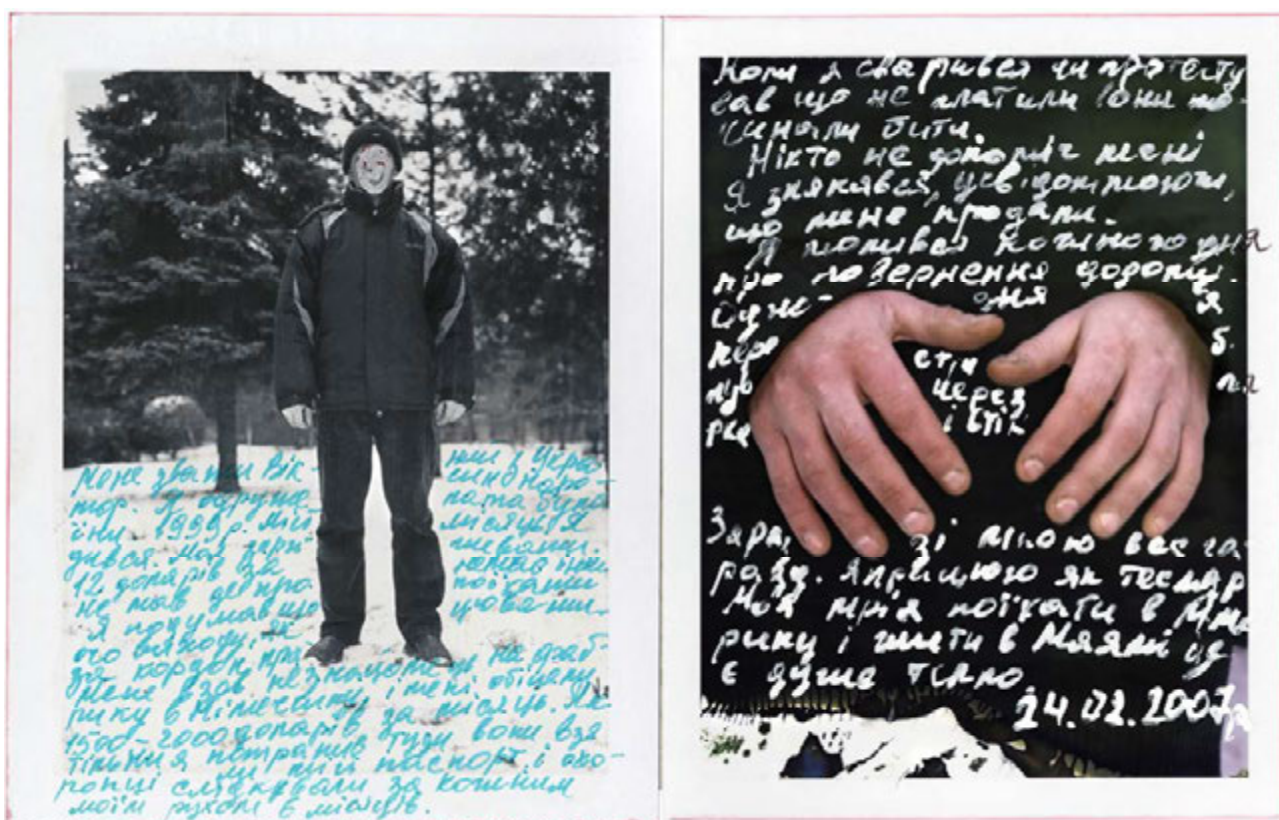 Мене звати Вік-
тор. Я одруже-
ний з Укра-
їни. 1999 р. мій
син наро-
дився. Моя зарп-
лата була
12 доларів за
місяць. Я
не мав де про-
Я подумав що
за кордон
мене взяв незнайомець на фаб-
рику в Німеччину, і мені обіцяли
1500-2000 доларів за місяць. Як
тільки я потрапив туди вони взя-
ли мій паспорт і охо-
ронці слідкували за кожним
моїм рухом 6 місяців.
Коли я сварився чи протесту
вав що не платили вони по-
чинали бити.
Ніхто не допоміг мені
Я злякався, усвідомлюючи,
що мене продали.
Я молився кожного дня
про повернення додому.
Одно- дня я
пере б.
що стін ля
через
рке і втік
Зараз зі мною все га-
разд. Я працюю як тесляр
Моя мрія поїхати в Аме
рику і жити в Маямі де
є дуже тепло
24.02.2007